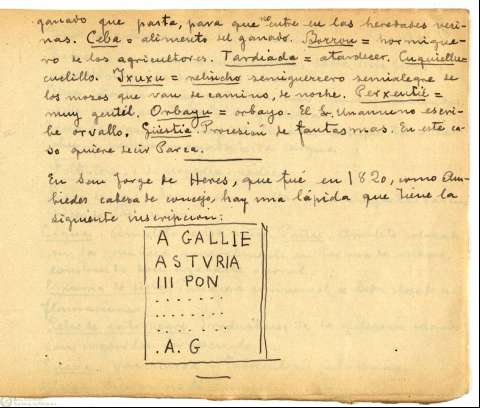 ganado que pasta, para que no entre en las heredades veci-
nas. Ceba = alimento del ganado. Borrou = hormigue-
ro de los agricultores. Tardiada = atardecer. Cuquiellu =
cuclillo. Ixuxu = relincho semiguerrero semialegre de
los mozos que van de camino, de noche. Perxentil =
muy gentil. Orbayu = orbayo. El Sr. Unamuno escri-
be orvallo. Güestia. Procesión de fantasmas. En este ca-
so quiere decir Parca.
En San Jorge de Heres, que fué en 1820, como Am-
biedes cabeza de concejo, hay una lápida que tiene la
siguiente inscripcion:
A GALLIE
ASTVRIA
III PON
. . . . . . .
. . . . . . . .
. . . . . . .
. A. G